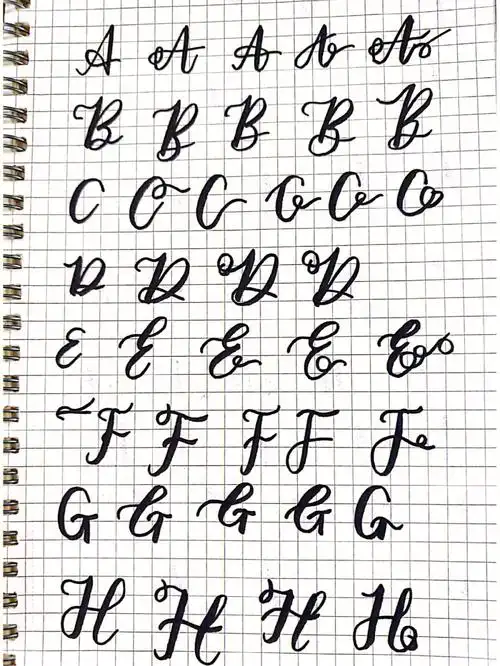 A A A A A
B B B B B
C C C C C C
D D D D
E E E E E
F F F F F
G G G G G
H H H H